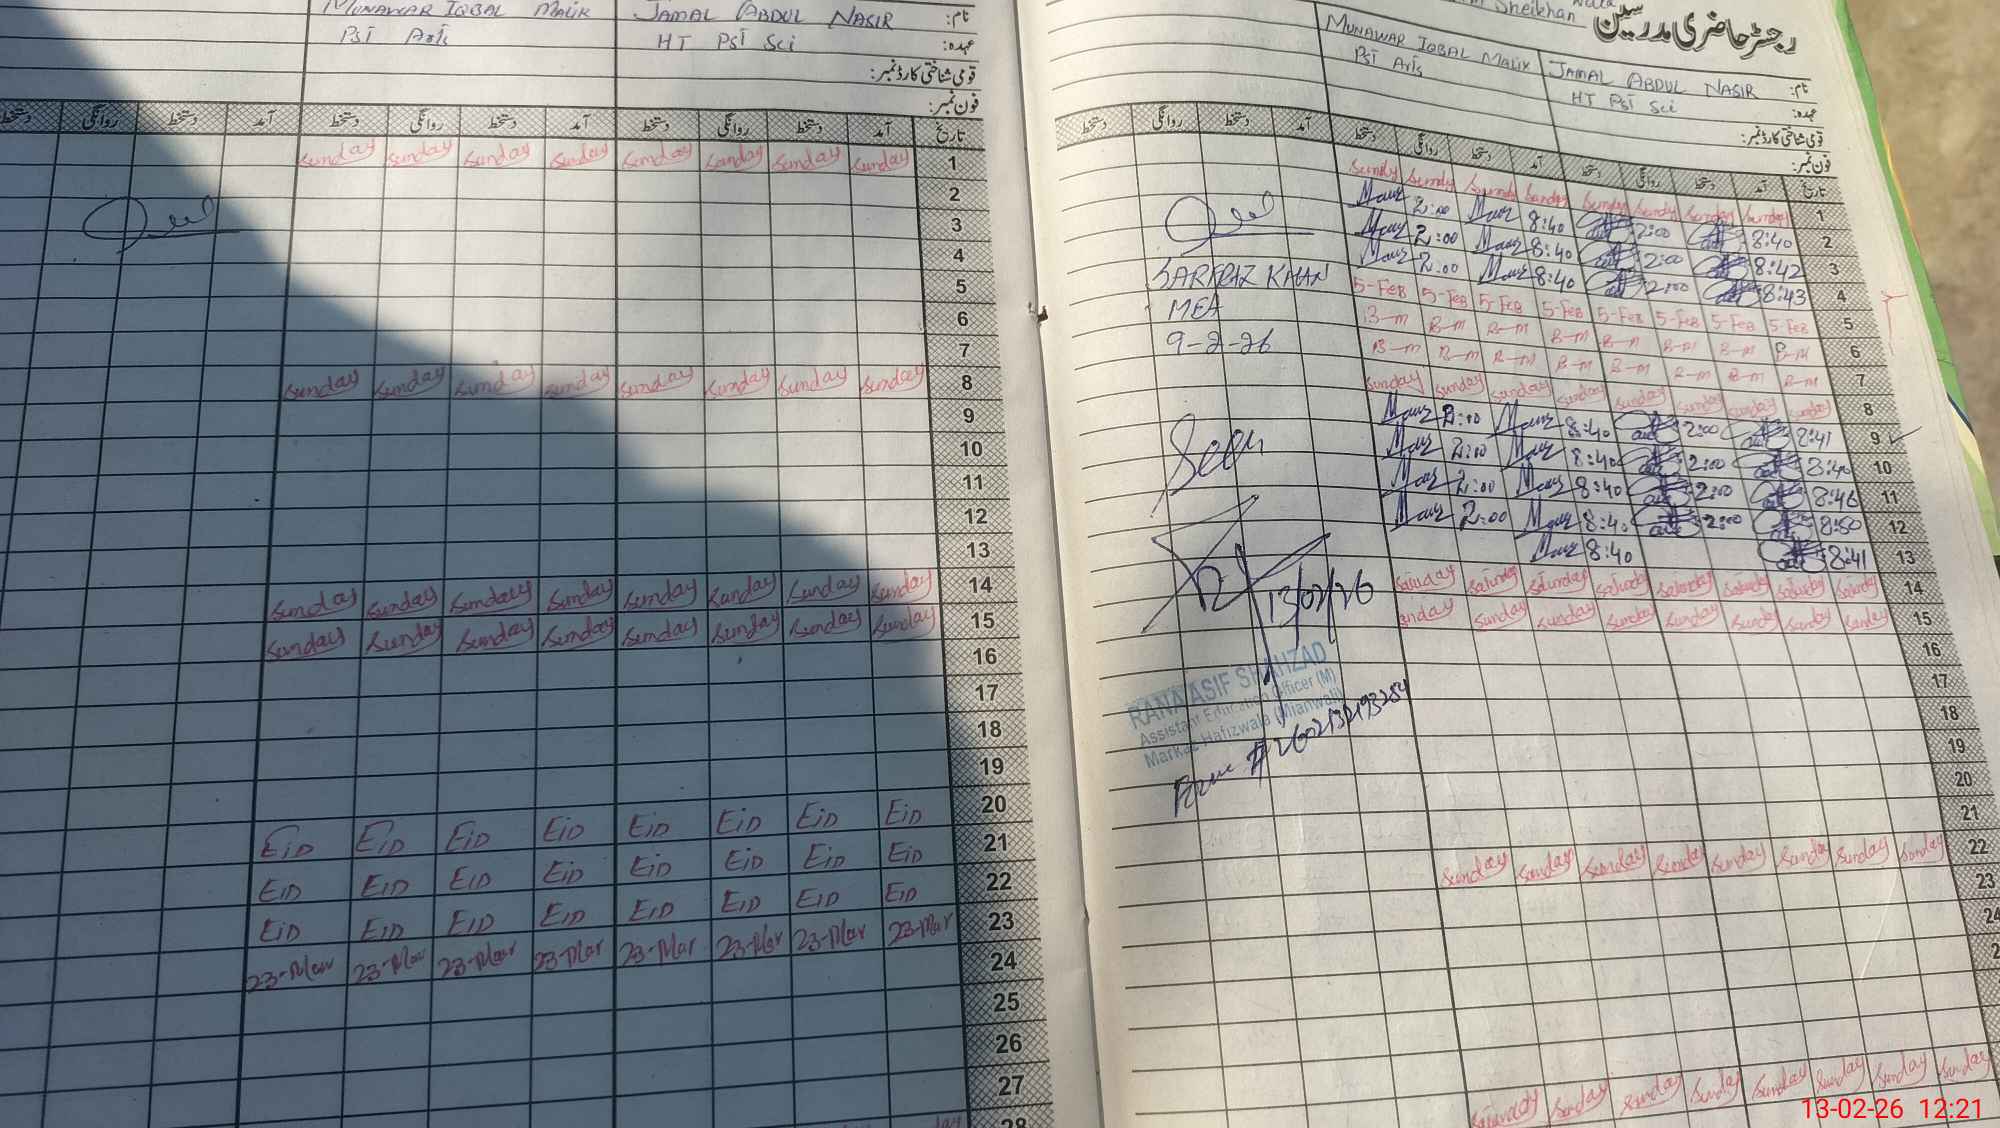 MUNAWAR IQBAL MALIK JAMAL ABDUL NASIR نام:
PST Arts HT PST Sci عہدہ:
قومی شناختی کارڈ نمبر:
فون نمبر:
دستخط روانگی دستخط آمد دستخط روانگی دستخط آمد دستخط روانگی دستخط آمد تاریخ
Sunday Sunday Sunday Sunday Sunday Sunday Sunday Sunday 1
2
3
4
5
6
7
Sunday Sunday Sunday Sunday Sunday Sunday Sunday Sunday 8
9
10
11
12
13
Sunday Sunday Sunday Sunday Sunday Sunday Sunday Sunday 14
Sunday Sunday Sunday Sunday Sunday Sunday Sunday Sunday 15
16
17
18
19
EiD EiD EiD EiD EiD EiD EiD EiD 20
EiD EiD EiD EiD EiD EiD EiD EiD 21
EiD EiD EiD EiD EiD EiD EiD EiD 22
23-Mar 23-Mar 23-Mar 23-Mar 23-Mar 23-Mar 23-Mar 23-Mar 23
24
25
26
27
28
Sheikhan Wala
رجسٹر حاضری مدرسین
MUNAWAR IQBAL MALIK JAMAL ABDUL NASIR نام:
PST Arts HT PST Sci عہدہ:
قومی شناختی کارڈ نمبر:
فون نمبر:
دستخط روانگی دستخط آمد دستخط روانگی دستخط آمد دستخط روانگی دستخط آمد تاریخ
Sundy Sundy Sunday Sunday Sunday Sundy Sunday Sunday 1
2:00 8:40 2:00 8:40 2
2:00 8:40 2:00 8:42 3
2:00 8:40 2:00 8:43 4
SARFRAZ KHAN
MEA
9-2-26
5-Feb 5-Feb 5-Feb 5-Feb 5-Feb 5-Feb 5-Feb 5-Feb 5
B-m B-m B-m B-m B-m B-m B-m B-m 6
B-m B-m B-m B-m B-m B-m B-m B-m 7
Sunday Sunday Sunday Sunday Sunday Sunday Sunday Sunday 8
2:00 8:40 2:00 8:41 9
2:00 8:40 2:00 8:40 10
2:00 8:40 2:00 8:46 11
2:00 8:40 2:00 8:50 12
8:40 8:41 13
Seen
13/02/26
Saturday Saturday Saturday Saturday Saturday Saturday Saturday Saturday 14
Sunday Sunday Sunday Sunday Sunday Sunday Sunday Sunday 15
RANA ASIF SHAHZAD
Assistant Education Officer (M)
Markaz Hafizwala (Mianwali)
16
17
18
19
20
21
Sunday Sunday Sunday Sunday Sunday Sunday Sunday Sunday 22
23
24
Sunday Sunday Sunday Sunday Sunday Sunday Sunday
13-02-26 12:21